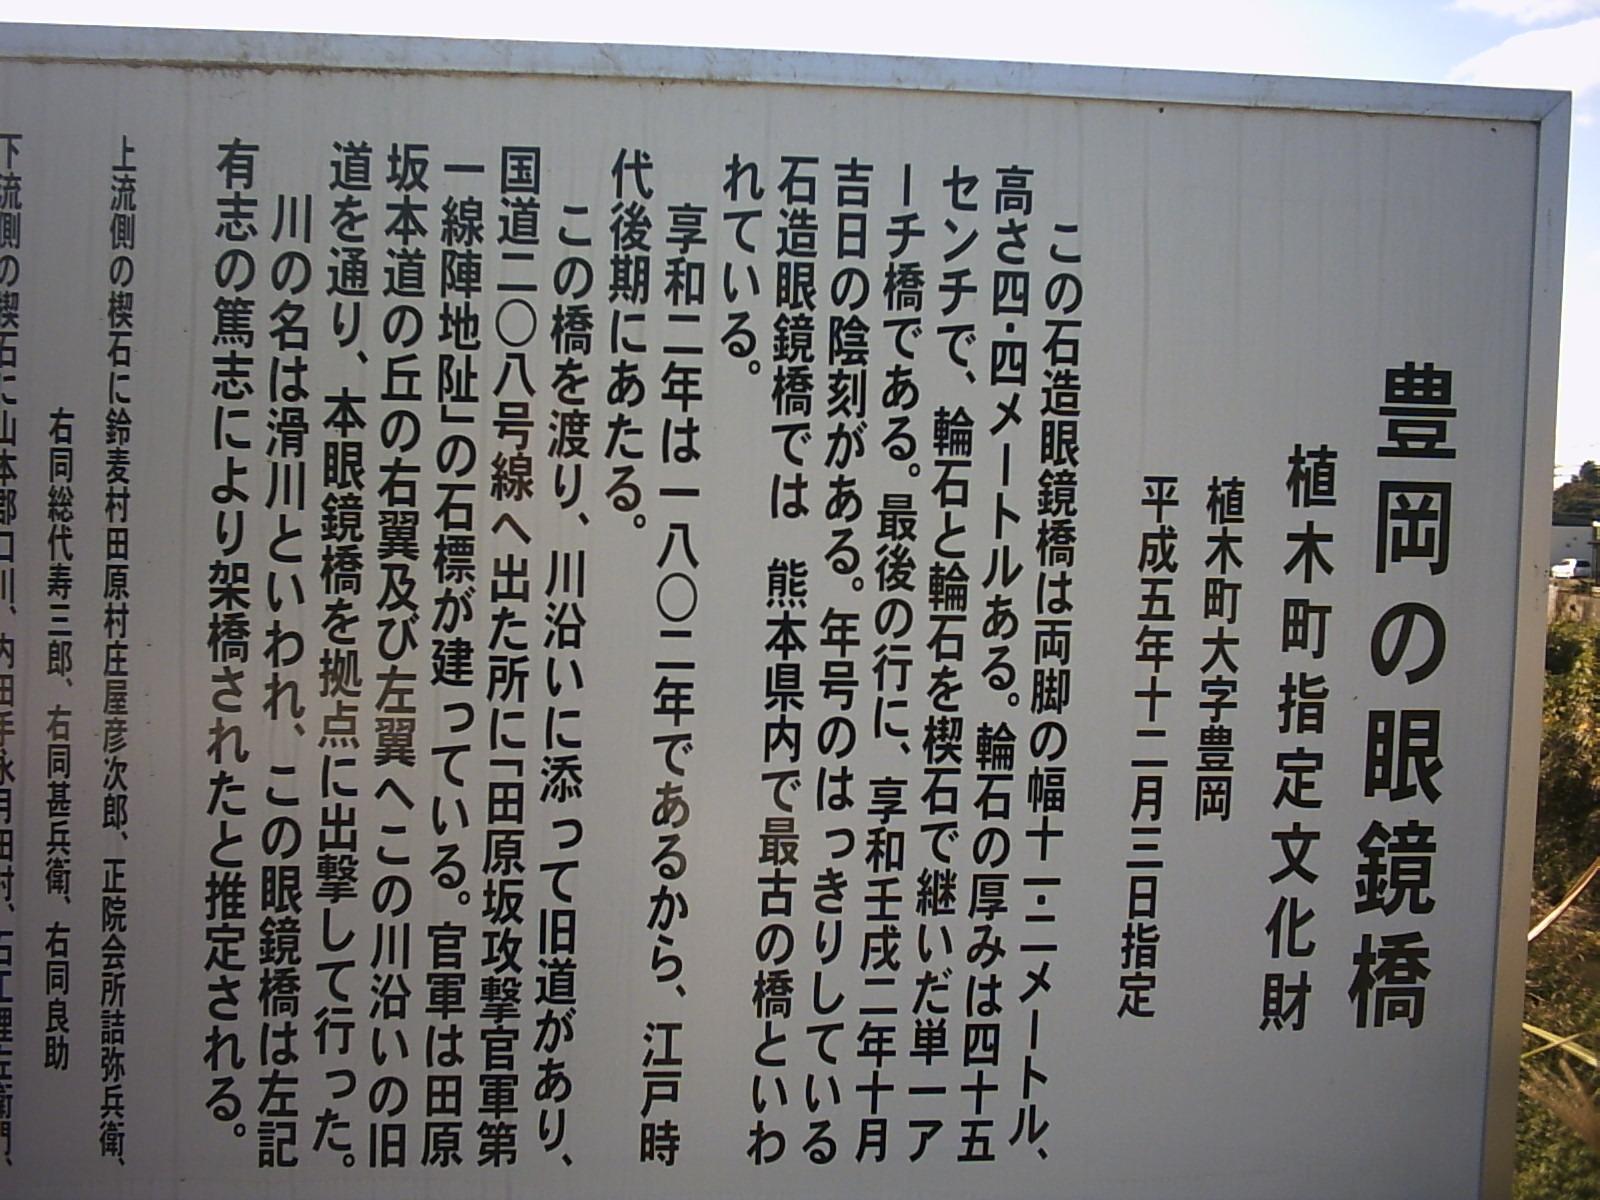 豊岡の眼鏡橋
植木町指定文化財
植木町大字豊岡
平成五年十二月三日指定
この石造眼鏡橋は両脚の幅十一・二メートル、
高さ四・四メートルある。輪石の厚みは四十五
センチで、輪石と輪石を楔石で継いだ単一ア
ーチ橋である。最後の行に、享和壬戌二年十月
吉日の陰刻がある。年号のはっきりしている
石造眼鏡橋では 熊本県内で最古の橋といわ
れている。
享和二年は一八〇二年であるから、江戸時
代後期にあたる。
この橋を渡り、川沿いに添って旧道があり、
国道二〇八号線へ出た所に「田原坂攻撃官軍第
一線陣地趾」の石標が建っている。官軍は田原
坂本道の丘の右翼及び左翼へこの川沿いの旧
道を通り、本眼鏡橋を拠点に出撃して行った。
川の名は滑川といわれ、この眼鏡橋は左記
有志の篤志により架橋されたと推定される。
上流側の楔石に鈴麦村田原村庄屋彦次郎、正院会所詰弥兵衛、
右同総代寿三郎、右同甚兵衛、右同良助
下流側の楔石に山本郡口川、内田手永円田村、石工理左衛門、